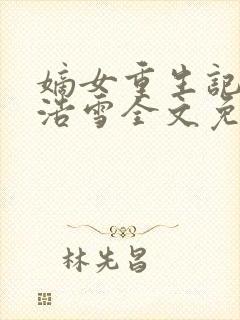 嫡女重生記
浩雪全文免
林先昌